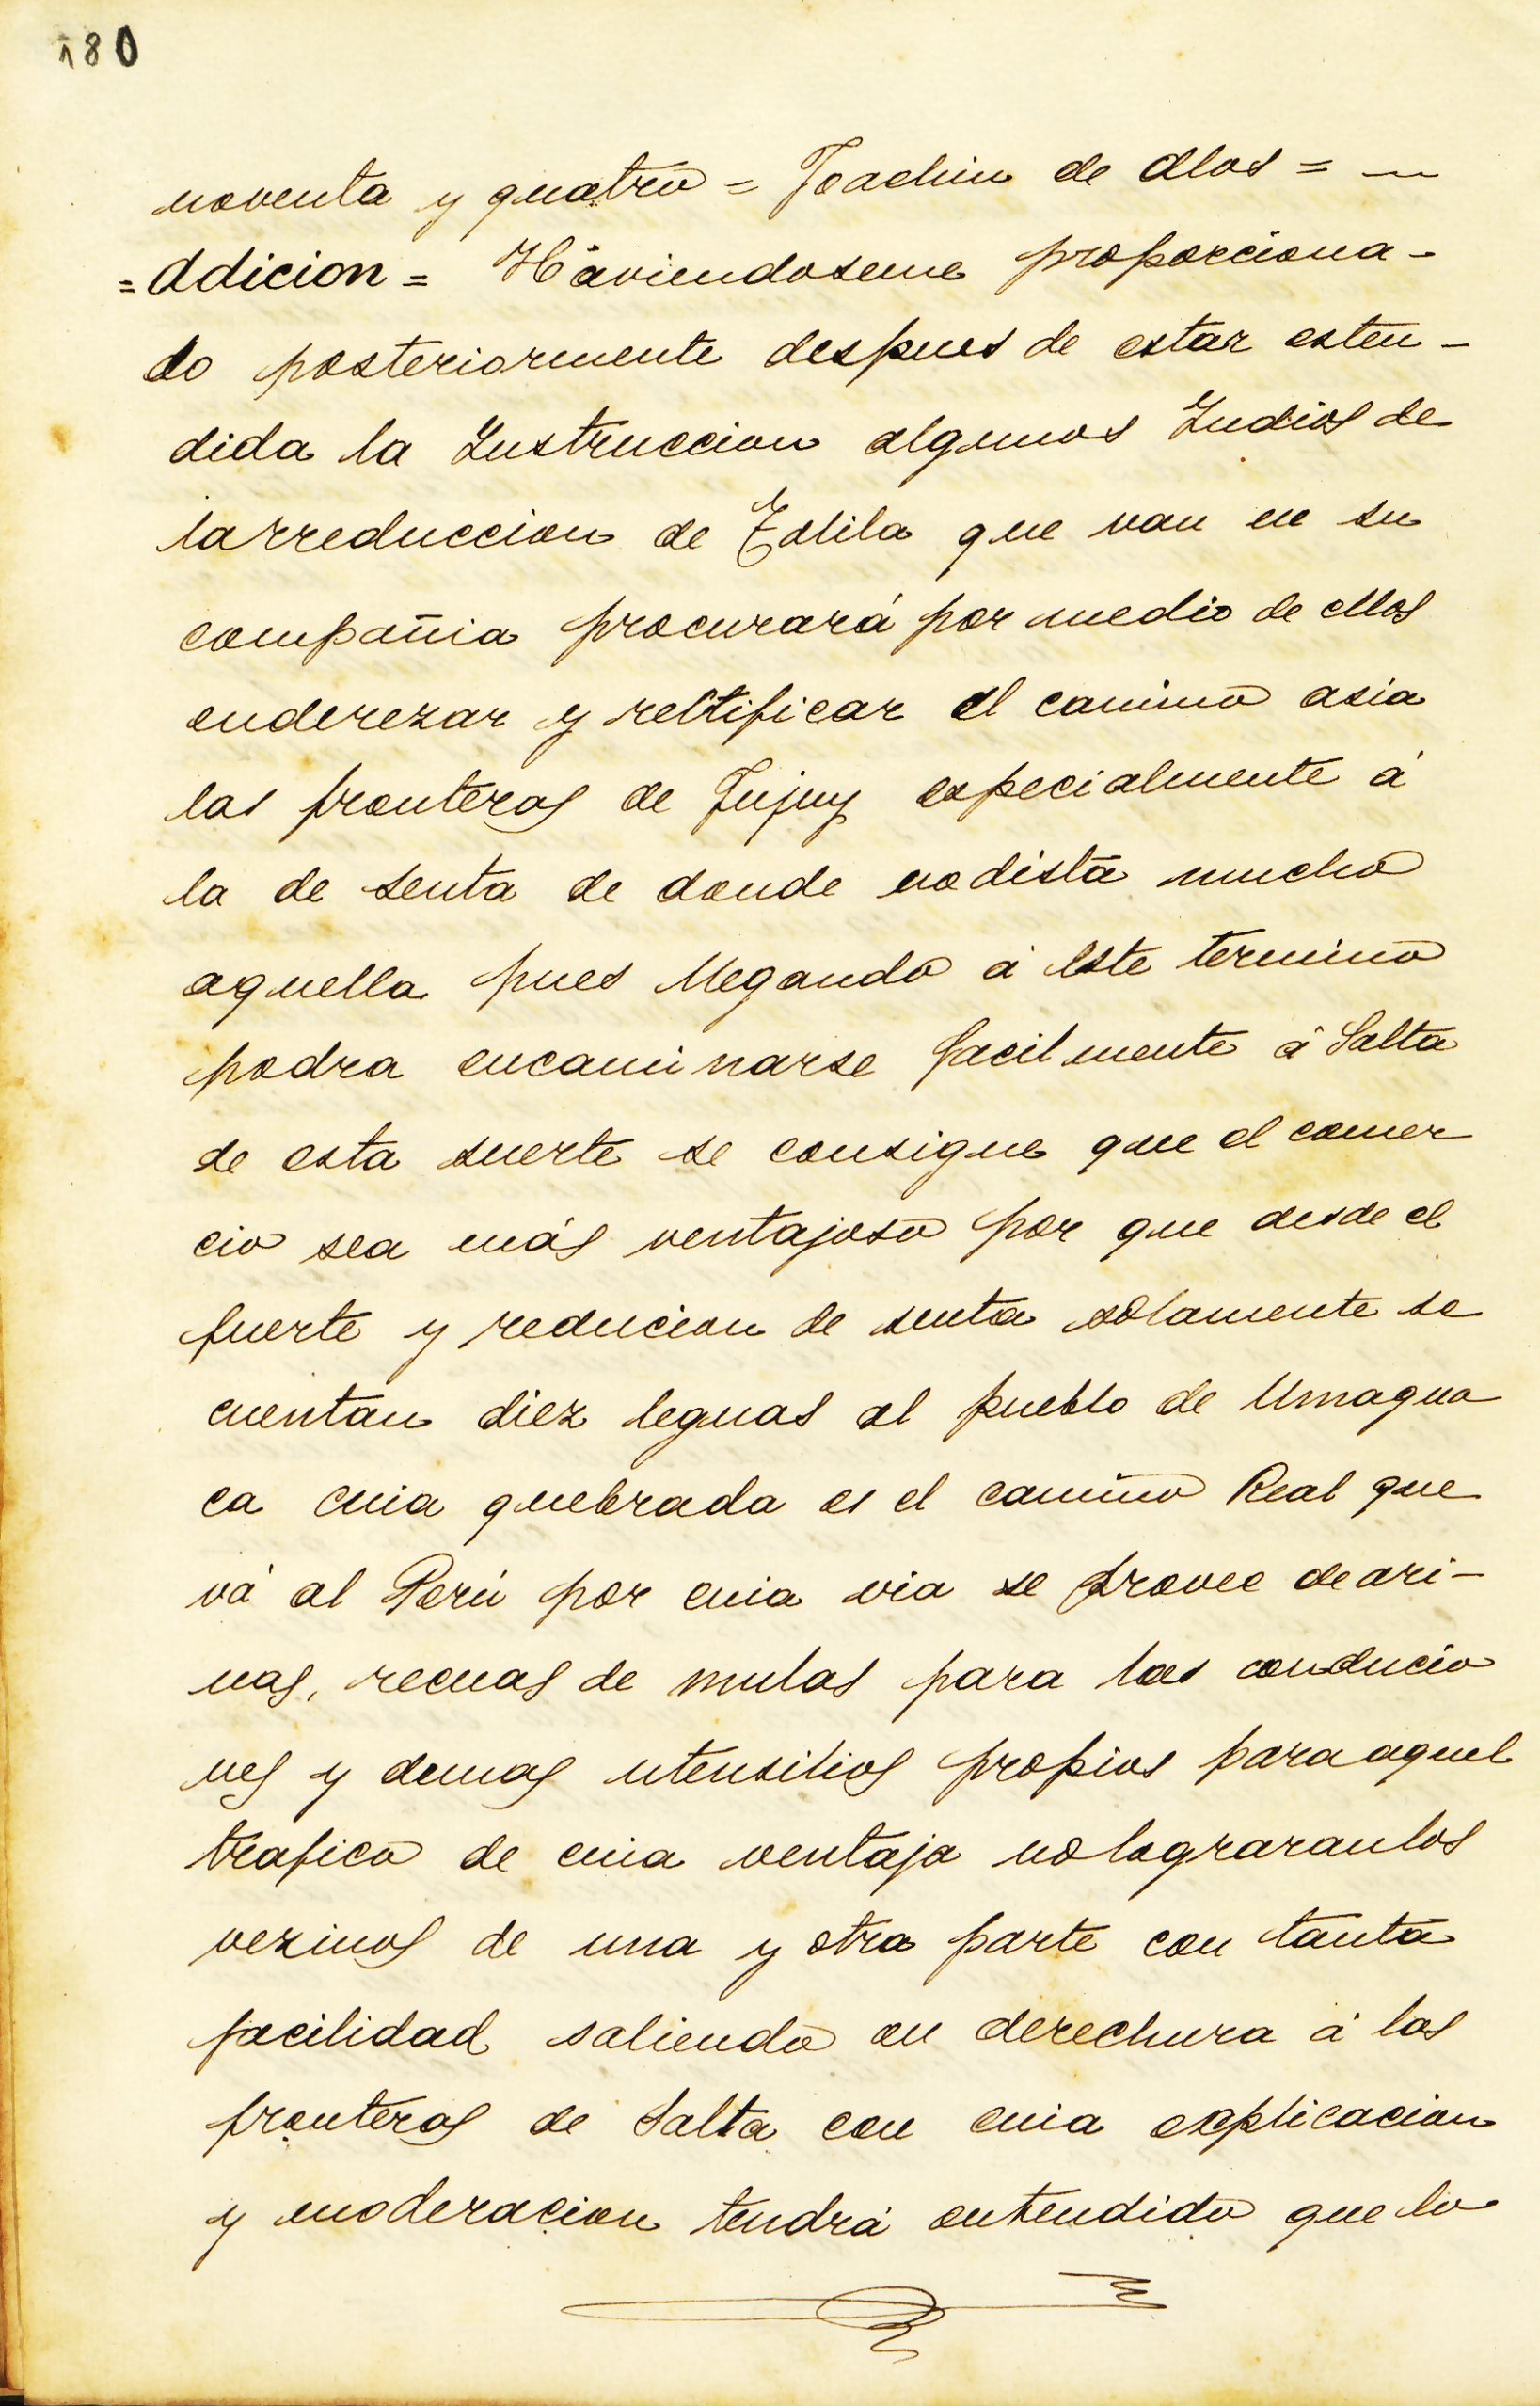 180
noventa y quatro = Joachin de Alos = —
= Adicion = Haviendoseme proporciona-
do posteriormente despues de estar esten-
dida la Instruccion algunos Indios de
larreduccion de Zolila que van en su
compañia procurará por medio de ellos
enderezar y reltificar el camino asia
las fronteras de Jujuy especialmente á
la de senta de donde nodista mucho
aquella pues llegando á este termino
podra encaminarse facilmente á Salta
de esta suerte se consigue que el comer
cio sea más ventajoso por que desde el
fuerte y reducion de senta solamente se
cuentan diez leguas al pueblo de Umagua
ca cuia quebrada es el camino Real que
vá al Perú por cuia via se provee deari-
nas, recuas de mulas para las conducio
nes y demas utensilios propios paraaquel
trafico de cuia ventaja nolograranlos
vezinos de una y otra parte con tanta
facilidad saliendo en derechura á las
fronteras de Salta con cuia explicacion
y moderacion tendrá entendido que lo